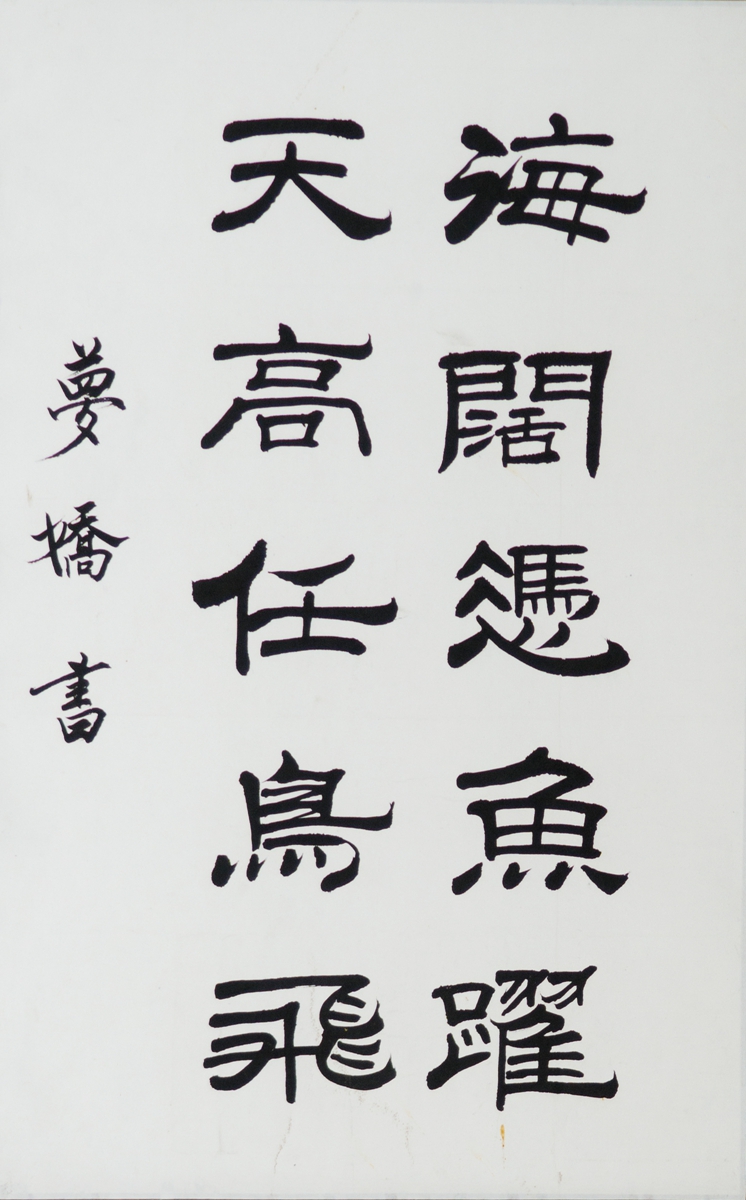 海闊憑魚躍
天高任鳥飛
夢嬌書